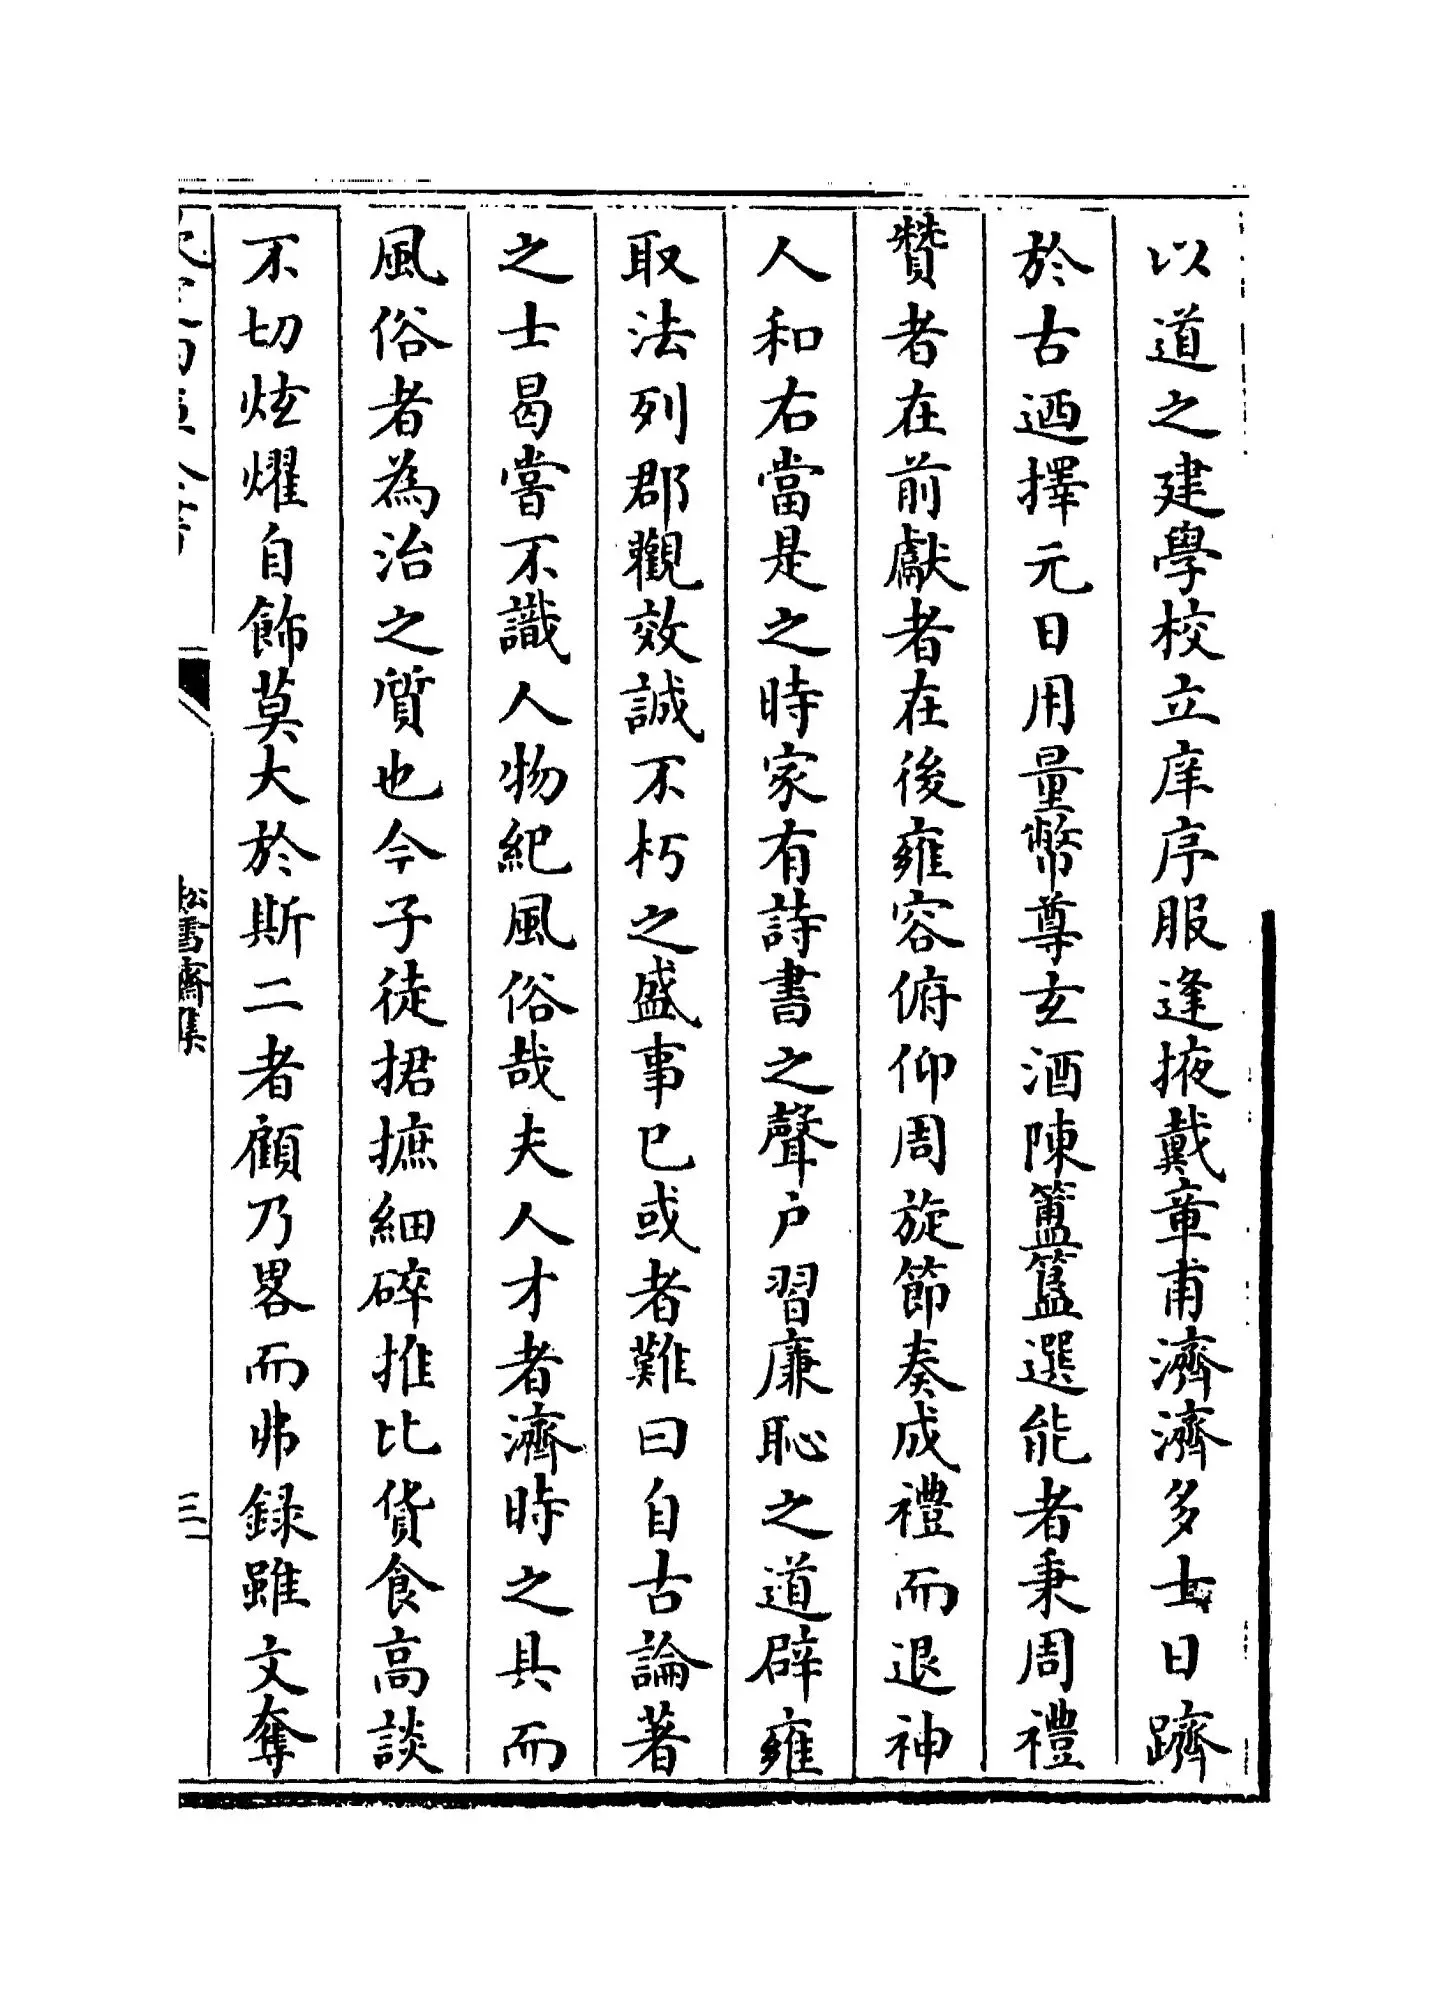 以道之建學校立庠序服逢掖戴章甫濟濟多士日躋
於古迺擇元日用量幣尊玄酒陳簠簋選能者秉周禮
贊者在前獻者在後雍容俯仰周旋節奏成禮而退神
人和右當是之時家有詩書之聲户習廉恥之道辟雍
取法列郡觀效誠不朽之盛事已或者難曰自古論著
之士曷嘗不識人物紀風俗哉夫人才者濟時之具而
風俗者為治之質也今子徒捃摭細碎推比貨食高談
不切炫燿自飾莫大於斯二者顧乃畧而弗録雖文奪
松雪齋集
三